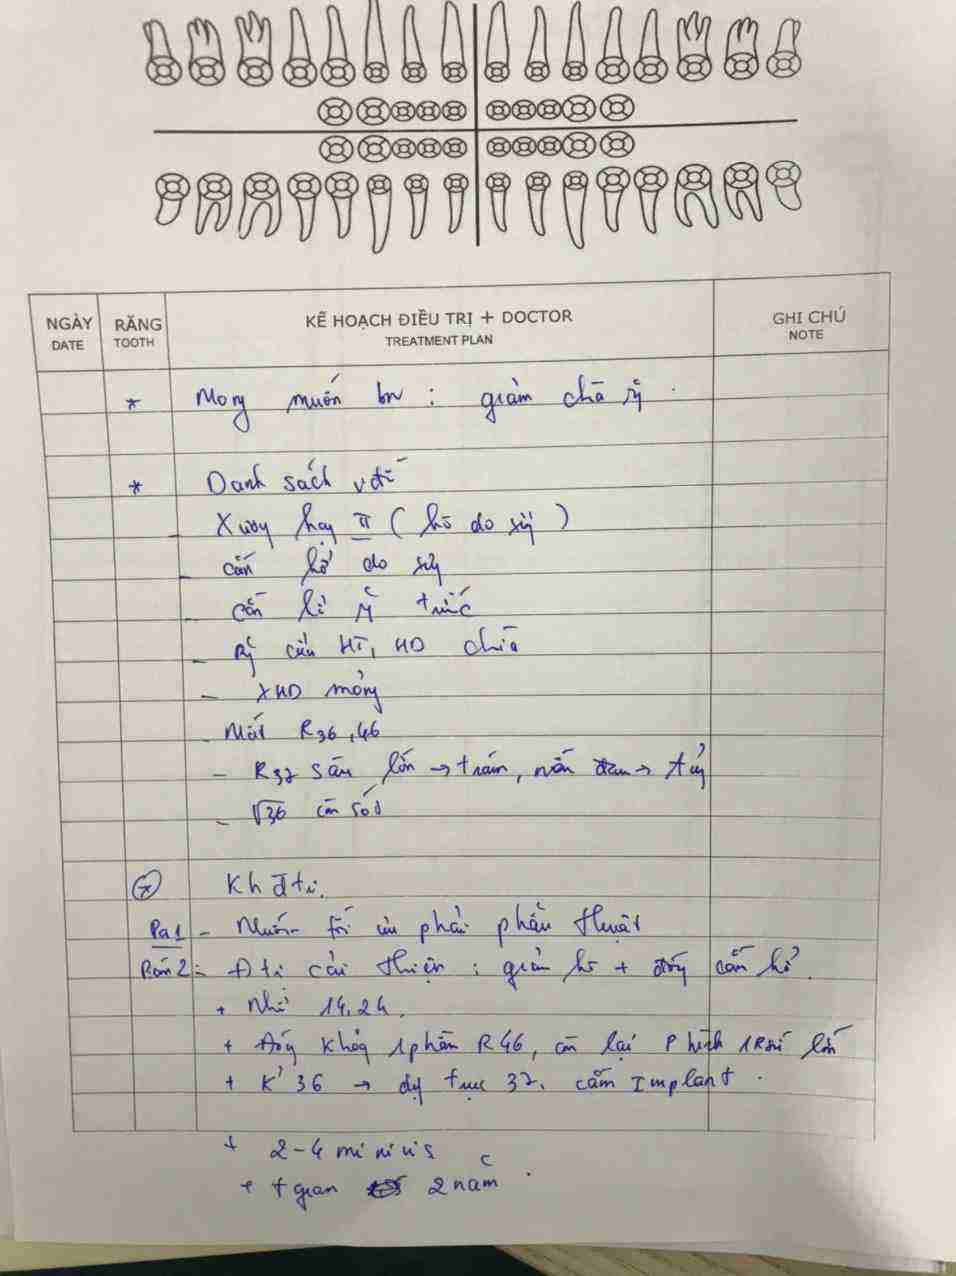 NGÀY
DATE
RĂNG
TOOTH
KẾ HOẠCH ĐIỀU TRỊ + DOCTOR
TREATMENT PLAN
GHI CHÚ
NOTE
* Mong muốn bn : giảm
* Danh sách vđề
- Xương hạng II (hô do
- cắn hở do
- cắn hở trước
- cửa HT, HD chìa
- XHD mỏng
- Mất R36, 46
- R37 sâu lớn → trám, nếu đau → tủy
- √36 còn sót
* Kh đtrị.
Pa1 - Muốn tối ưu phải phẫu thuật
2 - Đtrị cải thiện : giảm hô + đóng cắn hở.
+ Nhổ 14, 24.
+ Đóng khoảng 1 phần R46, còn lại lớn
+ K' 36 → dựng trục 37. cắm Implant.
+ 2-4 minivis
+ tgian 2 năm.